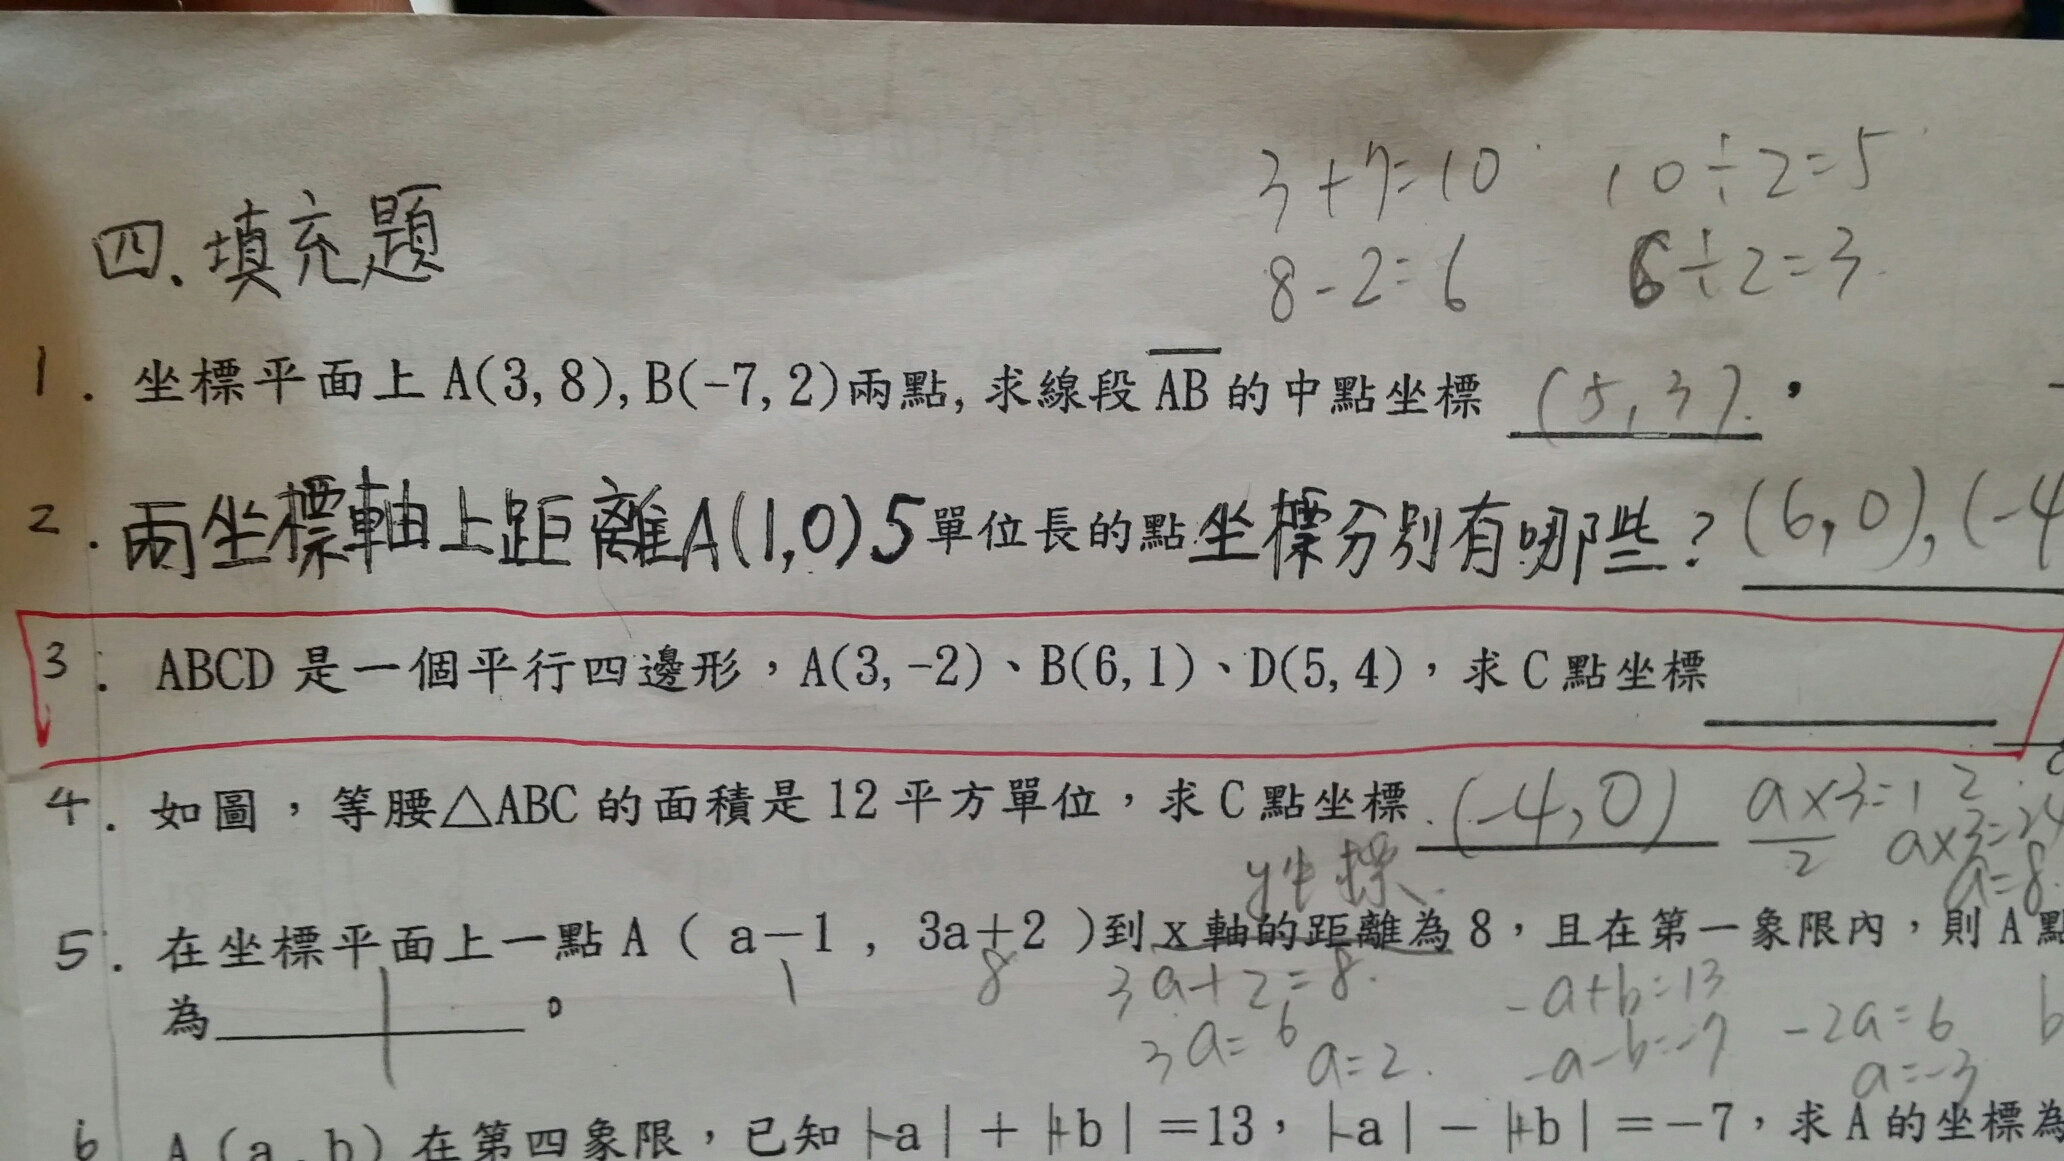 3+7=10 10÷2=5
四、填充題
8-2=6 6÷2=3
1. 坐標平面上 A(3,8),B(-7,2)兩點,求線段 AB 的中點坐標 (5,3).
2. 兩坐標軸上距離A(1,0)5單位長的點坐標分別有哪些?(6,0),(-4
3. ABCD 是一個平行四邊形,A(3,-2)、B(6,1)、D(5,4),求 C 點坐標
4. 如圖,等腰△ABC 的面積是 12 平方單位,求 C 點坐標 (-4,0) a×3/2=12
a×3=24
y坐標 a=8
5. 在坐標平面上一點 A ( a-1 , 3a+2 )到 x 軸的距離為 8,且在第一象限內,則 A 點
1 8 3a+2=8. -a+b=13
為 。 3a=6 a=2. -a-b=-7 -2a=6 b
a=-3
6 A (a,b) 在第四象限,已知|-a| + |+b| =13, |-a| - |+b| =-7,求 A 的坐標為